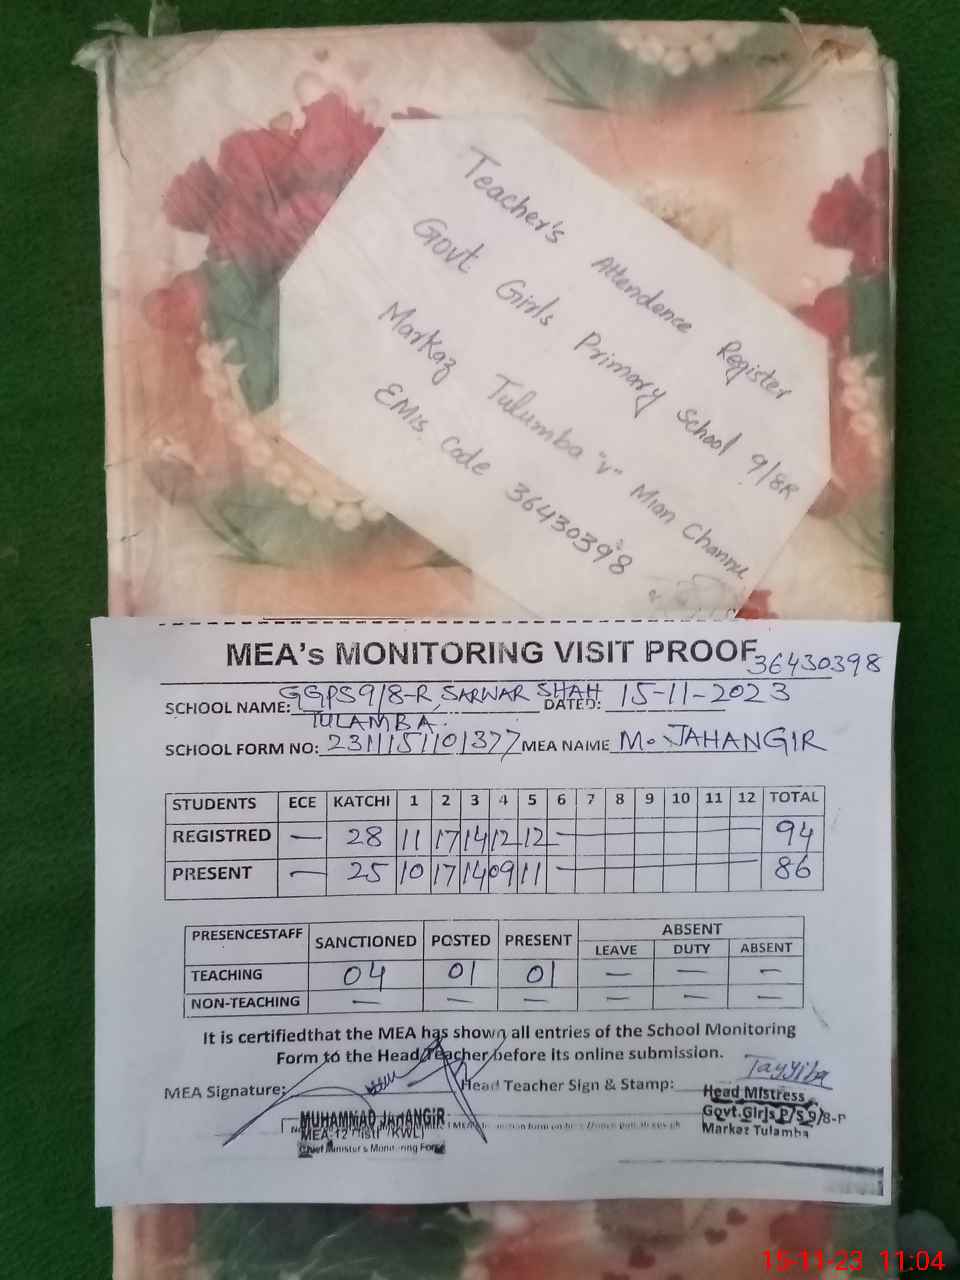 Teacher's Attendence Register
Govt Girls Primary School 9/8R
Markaz Tulumba "v" Mian Channu
EMIS Code 36430398
MEA's MONITORING VISIT PROOF
36430398
SCHOOL NAME: GGPS 9/8-R, SARWAR SHAH DATED: 15-11-2023
TULAMBA.
SCHOOL FORM NO: 2311151101377 MEA NAME M. JAHANGIR
STUDENTS ECE KATCHI 1 2 3 4 5 6 7 8 9 10 11 12 TOTAL
REGISTRED — 28 11 17 14 12 12 — 94
PRESENT — 25 10 17 14 09 11 — 86
PRESENCESTAFF SANCTIONED POSTED PRESENT ABSENT
LEAVE DUTY ABSENT
TEACHING 04 01 01 — — —
NON-TEACHING — — — — — —
It is certifiedthat the MEA has shown all entries of the School Monitoring
Form to the Head Teacher before its online submission.
MEA Signature: Head Teacher Sign & Stamp: Tayyiba
Head Mistress
Govt. Girls P/S 9/8-R
Markaz Tulamba
MUHAMMAD JAHANGIR
MEA-12
Chief Minister's Monitoring Force
15-11-23 11:04